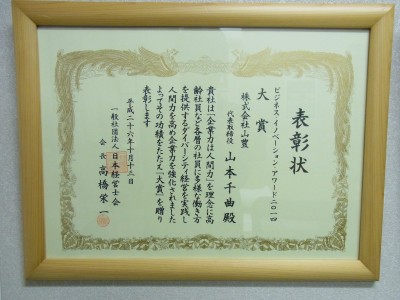 表彰状
ビジネス・イノベーション・アワード二〇一四
大賞
株式会社山豊
代表取締役 山本千曲殿
貴社は「企業力は人間力」を理念に高
齢社員など各層の社員に多様な働き方
を提供するダイバーシティ経営を実践し
人間力を高め企業力を強化されました
よってその功績をたたえ「大賞」を贈り
表彰します
平成二十六年十月十三日
一般社団法人日本経営士会
会長 高橋栄一